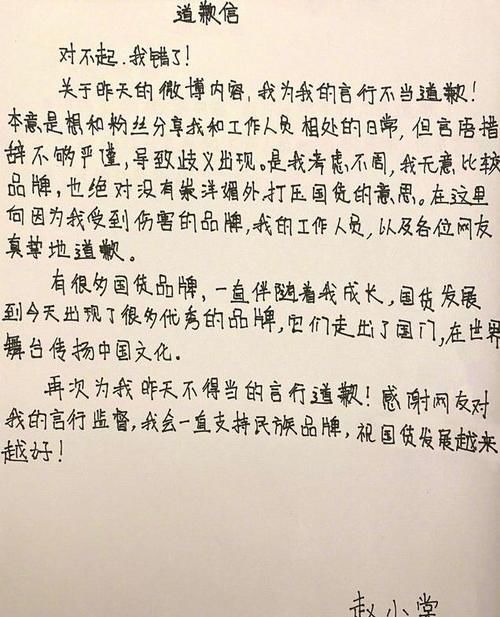 道歉信
对不起.我错了!
关于昨天的微博内容,我为我的言行不当道歉!
本意是想和粉丝分享我和工作人员相处的日常,但言语措
辞不够严谨,导致歧义出现。是我考虑不周,我无意比较
品牌,也绝对没有崇洋媚外.打压国货的意思。在这里
向因为我受到伤害的品牌,我的工作人员,以及各位网友
真挚地道歉。
有很多国货品牌,一直伴随着我成长,国货发展
到今天出现了很多优秀的品牌,它们走出了国门,在世界
舞台传扬中国文化。
再次为我昨天不得当的言行道歉!感谢网友对
我的言行监督,我会一直支持民族品牌,祝国货发展越来
越好!
赵小棠